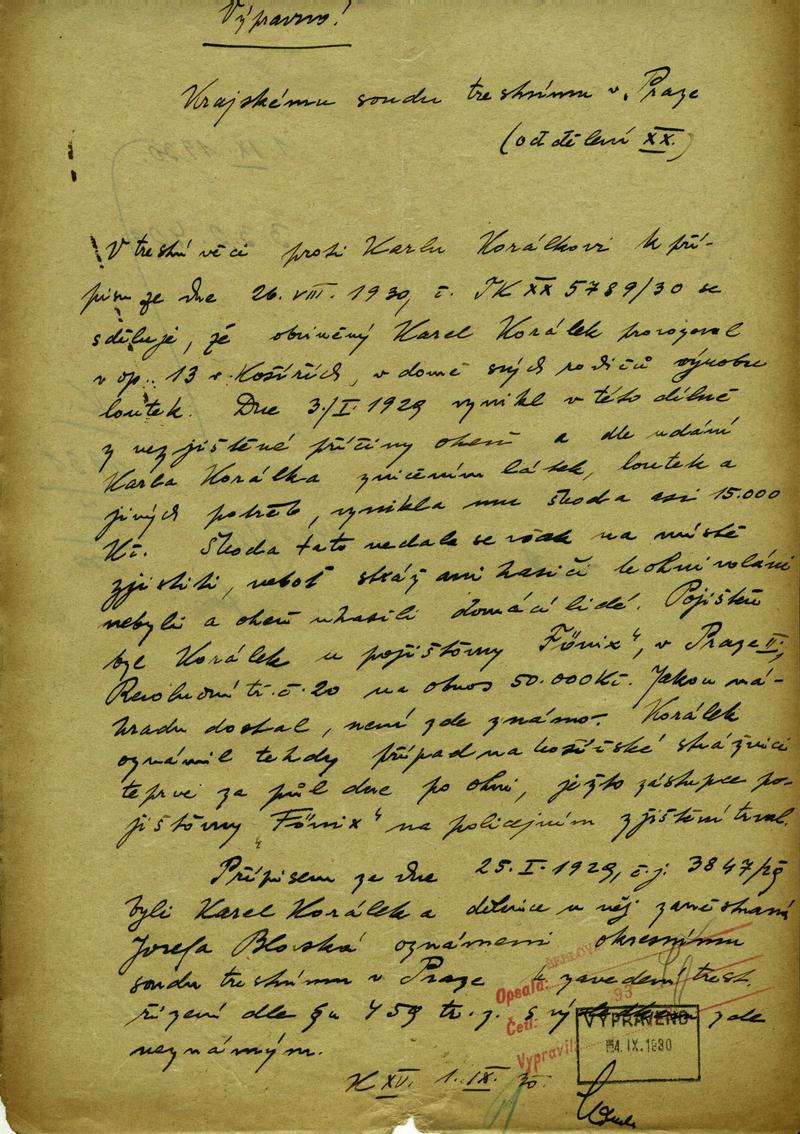 Výpravno!
Krajskému soudu trestnímu v Praze
(oddělení XX.)
V trestní věci proti Karlu Korálkovi k pří-
pisu ze dne 26. VIII. 1930, č. TK XX 5789/30 se
sděluje, že obviněný Karel Korálek provozoval
v op. 13 v Košířích, v domě svých rodičů výrobu
loutek. Dne 3./I. 1929 vznikl v této dílně
z nezjištěné příčiny oheň a dle udání
Karla Korálka zničením látek, loutek a
jiných potřeb, vznikla mu škoda asi 15.000
Kč. Škoda tato nedala se však na místě
zjistiti, neboť stráž ani hasiči k ohni voláni
nebyli a oheň uhasili domácí lidé. Pojištěn
byl Korálek u pojišťovny "Fönix", v Praze II.,
Revoluční tř. č. 20 na obnos 50.000 Kč. Jakou ná-
hradu dostal, není zde známo. Korálek
oznámil tehdy případ na košířské strážnici
teprve za půl dne po ohni, ježto zástupce po-
jišťovny "Fönix" na policejním zjištění trval.
Přípisem ze dne 25. I. 1929, č.j. 3847/29
byli Karel Korálek a dělnice u něj zaměstnaná
Josefa oznámeni okresnímu
soudu trestnímu v Praze k zavedení trest.
řízení dle §u 459 tr. z. s výsledkem zde
neznámým.
Opsala:
Četl:
Vypravil:
93
VYPRAVENO
4. IX. 1930
K XV. 1. IX. 30.